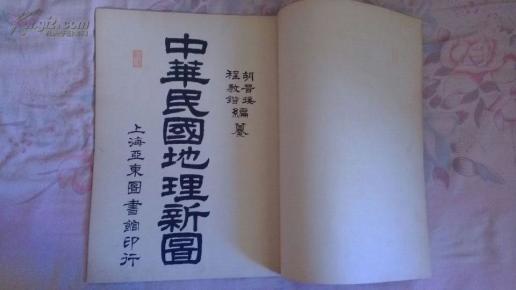 胡晉接
程敷鍇
編纂
中華民國地理新圖
上海亞東圖書館印行